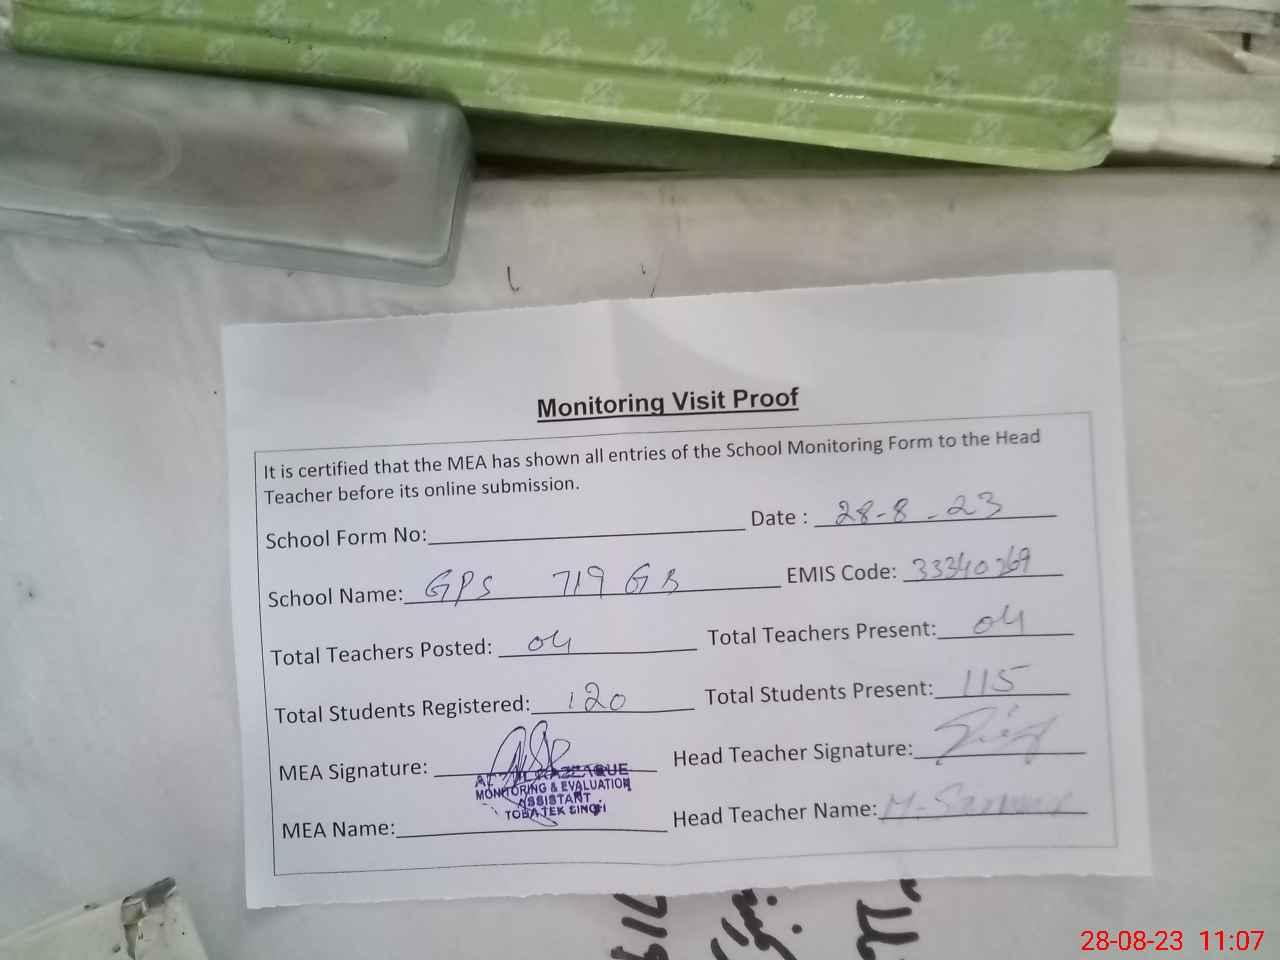 Monitoring Visit Proof
It is certified that the MEA has shown all entries of the School Monitoring Form to the Head
Teacher before its online submission.
School Form No: Date : 28-8-23
School Name: GPS 719 GB EMIS Code: 33340269
Total Teachers Posted: 04 Total Teachers Present: 04
Total Students Registered: 120 Total Students Present: 115
MEA Signature: Head Teacher Signature:
MONITORING & EVALUATION
ASSISTANT
TOBA TEK SINGH
MEA Name: Head Teacher Name: M.
719
28-08-23 11:07